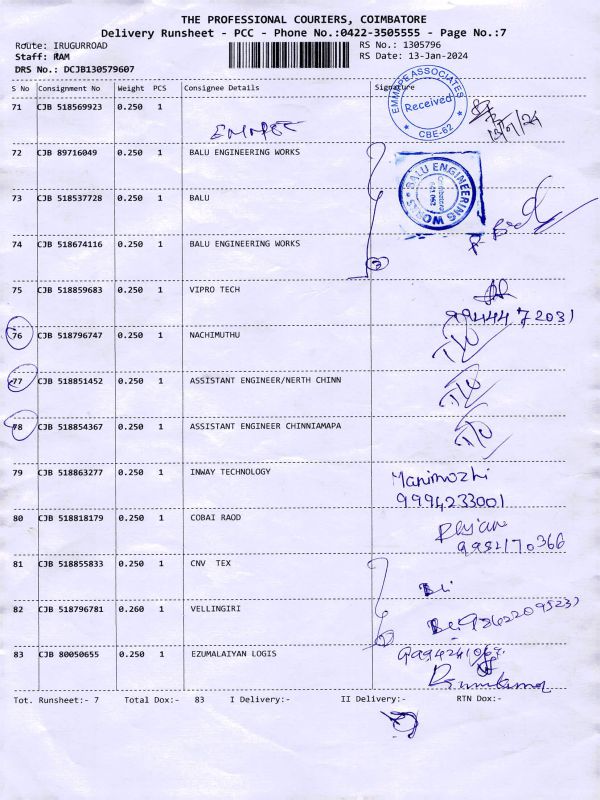 THE PROFESSIONAL COURIERS, COIMBATORE
Delivery Runsheet - PCC - Phone No.:0422-3505555 - Page No.:7
Route: IRUGURROAD RS No.: 1305796
Staff: RAM RS Date: 13-Jan-2024
DRS No.: DCJB130579607
S No Consignment No Weight PCS Consignee Details Signature
71 CJB 518569923 0.250 1
EMMPEE ASSOCIATES
Received
* CBE-62 *
72 CJB 89716049 0.250 1 BALU ENGINEERING WORKS
BALU ENGINEERING WORKS
73 CJB 518537728 0.250 1 BALU
74 CJB 518674116 0.250 1 BALU ENGINEERING WORKS
75 CJB 518859683 0.250 1 VIPRO TECH
9944472031
76 CJB 518796747 0.250 1 NACHIMUTHU
77 CJB 518851452 0.250 1 ASSISTANT ENGINEER/NERTH CHINN
78 CJB 518854367 0.250 1 ASSISTANT ENGINEER CHINNIAMAPA
79 CJB 518863277 0.250 1 INWAY TECHNOLOGY
Manimozhi
9994233001
80 CJB 518818179 0.250 1 COBAI RAOD
81 CJB 518855833 0.250 1 CNV TEX
82 CJB 518796781 0.260 1 VELLINGIRI
83 CJB 80050655 0.250 1 EZUMALAIYAN LOGIS
Tot. Runsheet:- 7 Total Dox:- 83 I Delivery:- II Delivery:- RTN Dox:-